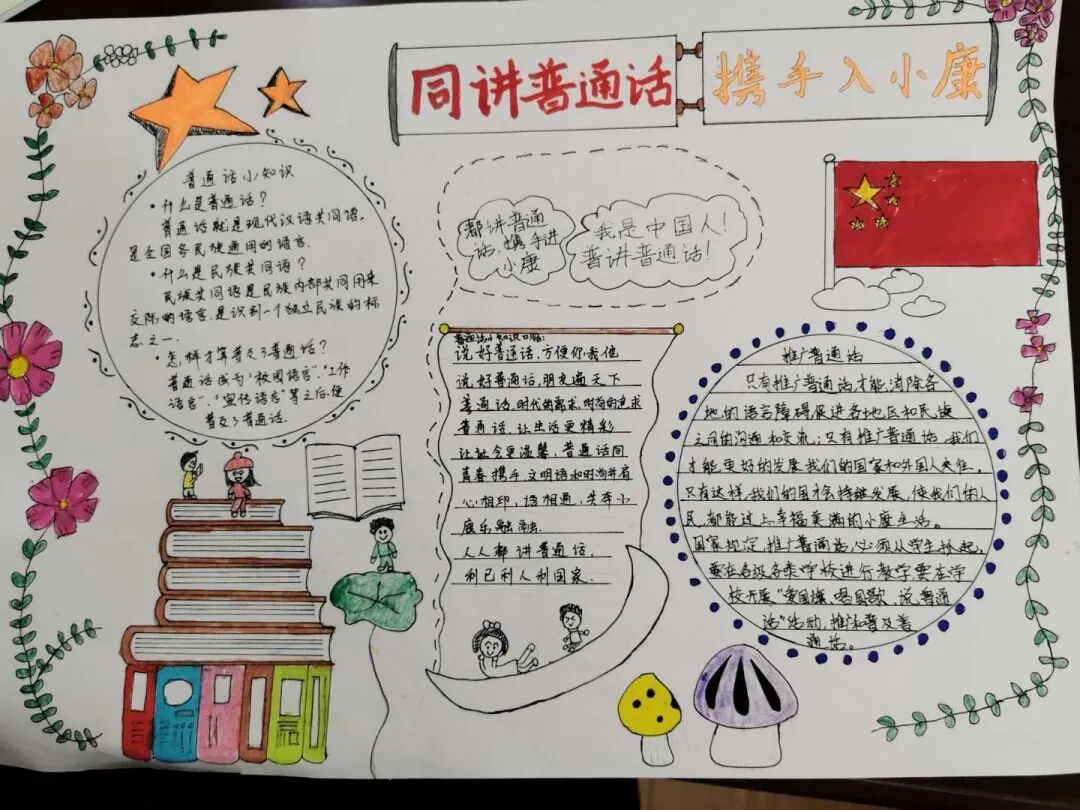 同讲普通话
携手入小康
普通话小知识
·什么是普通话?
普通话就是现代汉语共同语,
是全国各民族通用的语言.
·什么是民族共同语?
民族共同语是民族内部共同用来
交际的语言.是识别一个独立民族的标
志之一.
·怎样才算普及了普通话?
普通话成为"校园语言"、"工作
语言"、"宣传语言"等之后,便
普及了普通话.
都讲普通
话,携手进
小康
我是中国人!
普讲普通话!
普通话小知识口诀:
说好普通话,方便你我他
说好普通话,朋友遍天下
普通话,时代的需求,时尚的追求
普通话,让生活更精彩
让社会更温馨,普通话同
青春携手,文明语和时尚并肩
心相印,语相通,共奔小
康乐融融.
人人都讲普通话,
利己利人利国家.
推广普通话
只有推广普通话才能消除各
地的语言障碍促进各地区和民族
之间的沟通和交流;只有推广普通话,我们
才能更好的发展我们的国家和外国人交往。
只有这样,我们的国才会持续发展,使我们的人
民都能过上幸福美满的小康生活。
国家规定,推广普通话,必须从学生抓起,
要在各级各类学校进行教学要在学
校开展"爱国旗,唱国歌,说普通
话"活动,推广和普及普
通话。